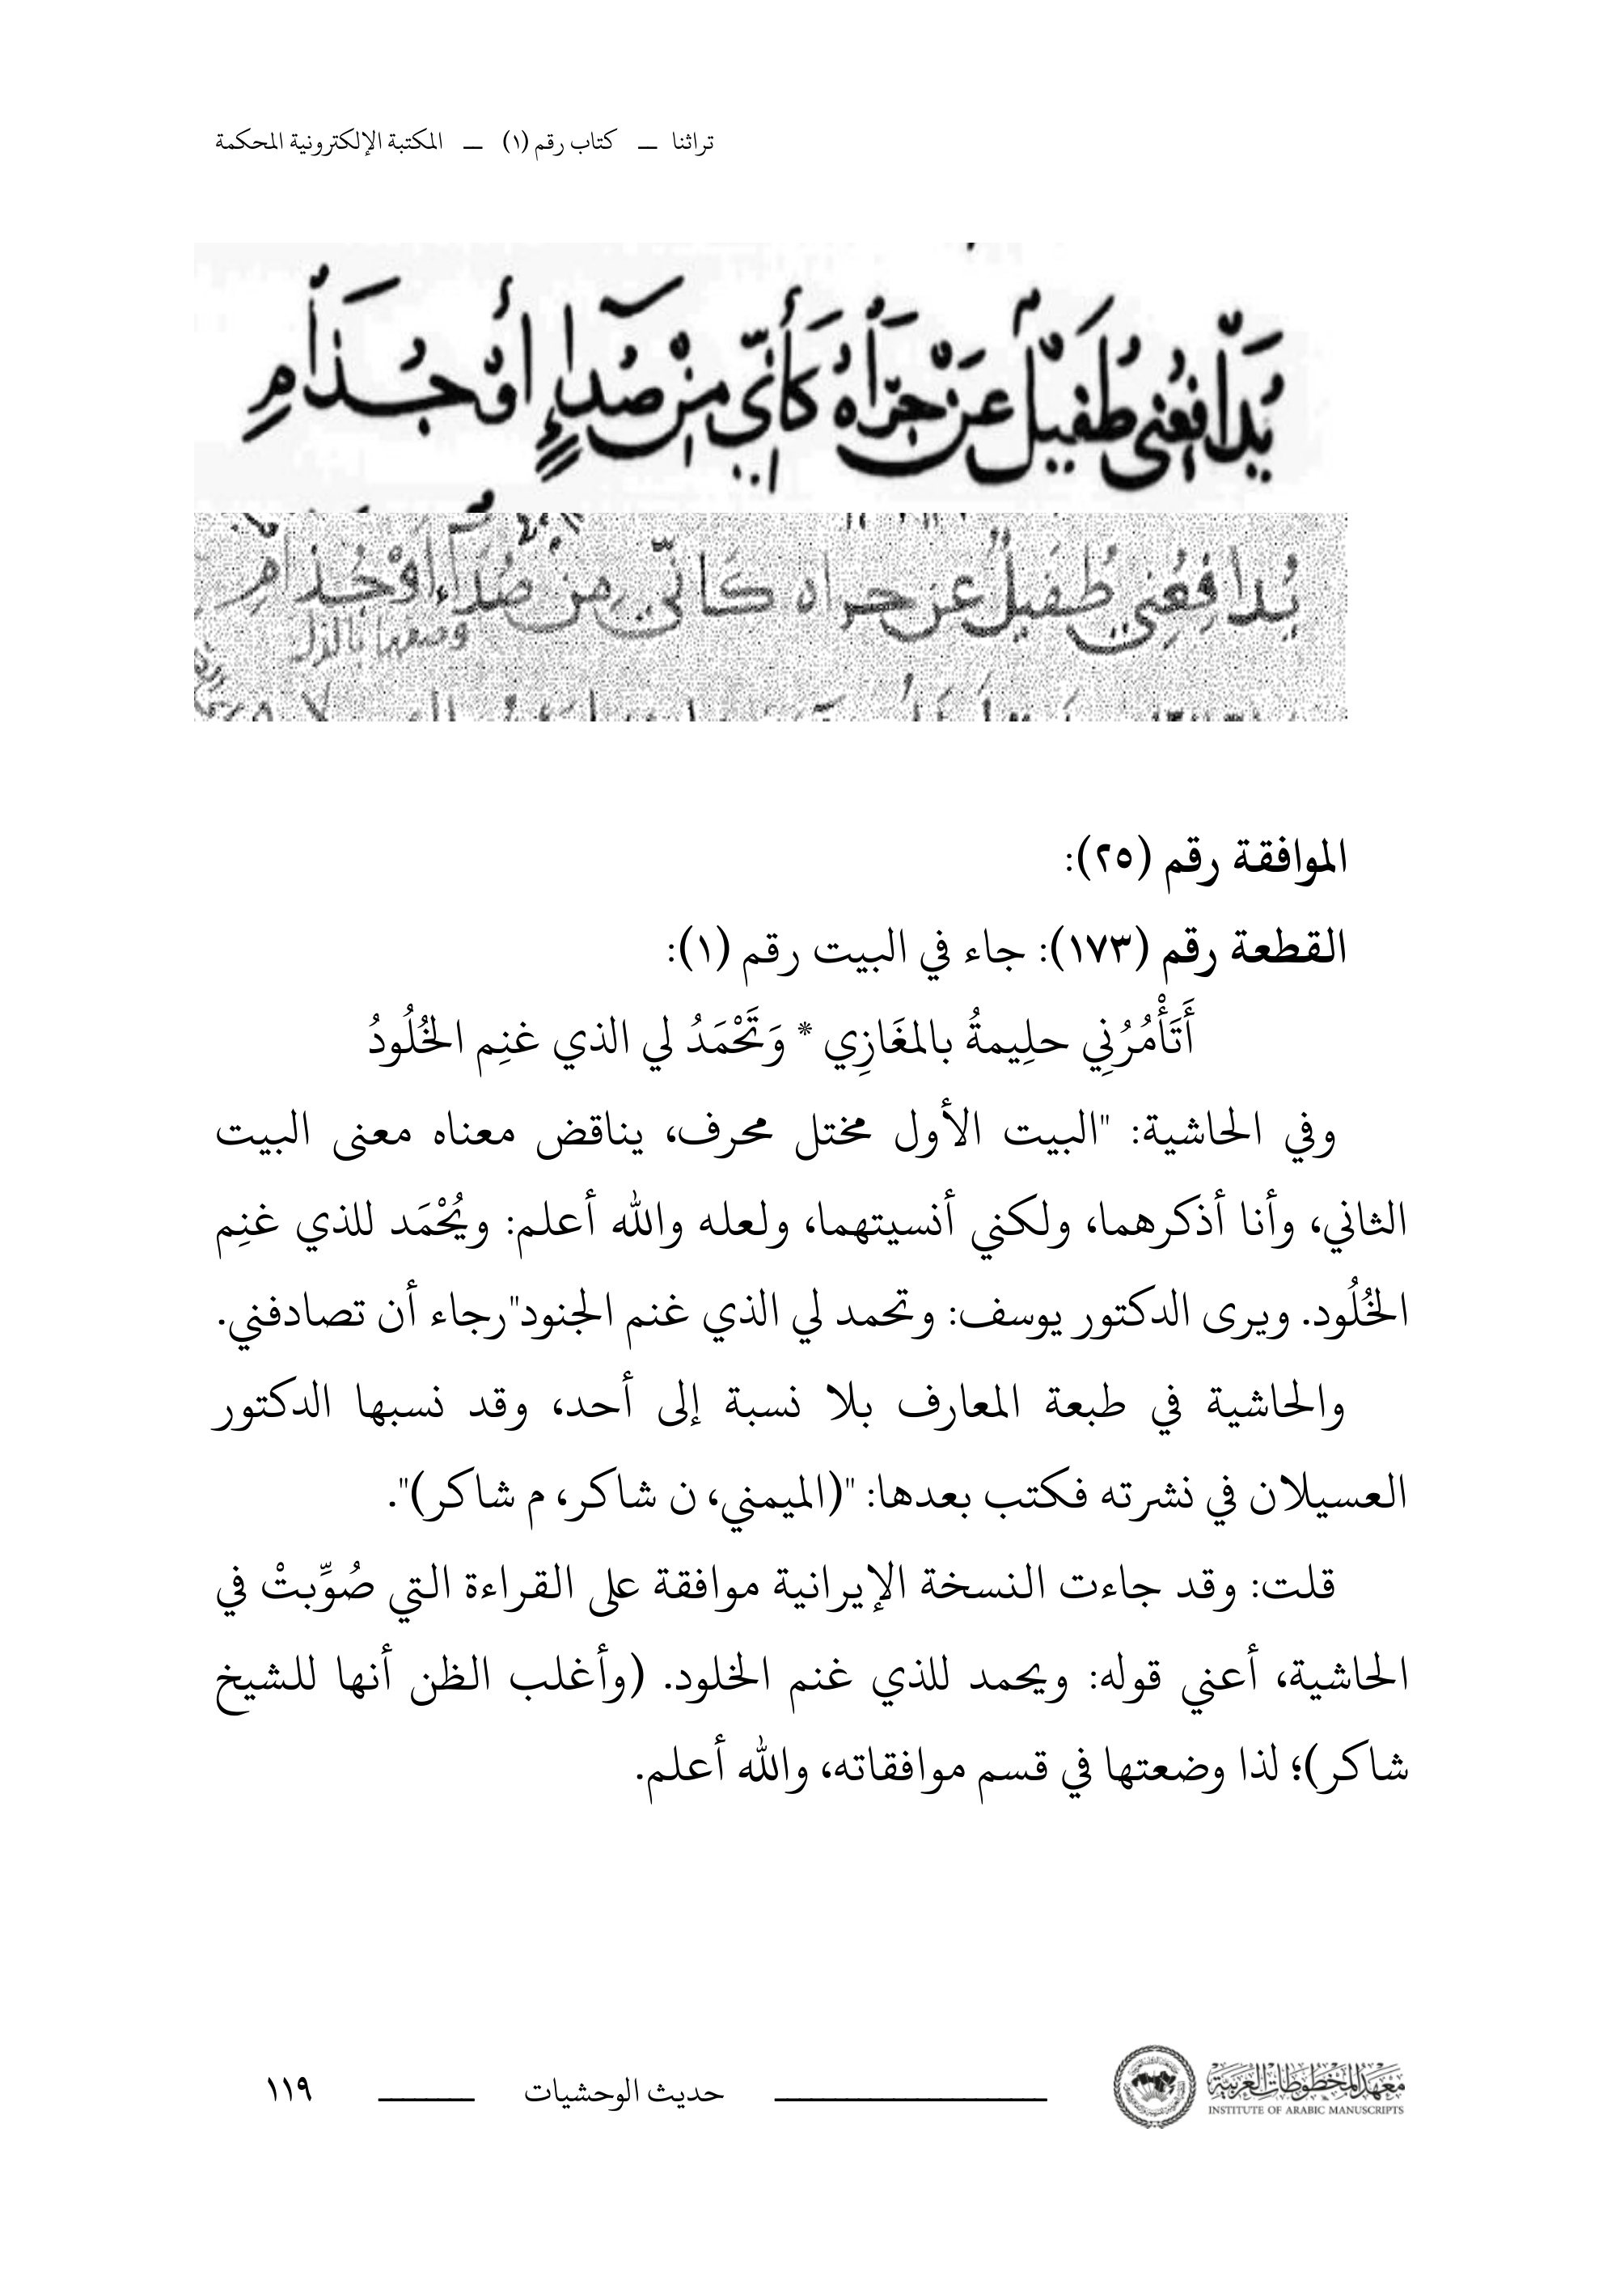 تراثنا ـــ كتاب رقم (١) ـــ المكتبة الإلكترونية المحكمة
يُدَافِعُنِي طُفَيلٌ عَنْ حِرَاهُ كَأَنِّي مِنْ صُدَاءٍ أَوْ جُذَامِ
يُدافِعُنِي طُفَيلٌ عن حراه كَأنّي من صُدَاء أوْ جُذامِ
وصفها بالذل
الموافقة رقم (٢٥):
القطعة رقم (١٧٣): جاء في البيت رقم (١):
أَتَأْمُرُنِي حلِيمةُ بالمغَازِي * وَتَحْمَدُ لي الذي غنِم الخُلُودُ
وفي الحاشية: "البيت الأول مختل محرف، يناقض معناه معنى البيت
الثاني، وأنا أذكرهما، ولكني أنسيتهما، ولعله والله أعلم: ويُحْمَد للذي غنِم
الخُلُود. ويرى الدكتور يوسف: وتحمد لي الذي غنم الجنود"رجاء أن تصادفني.
والحاشية في طبعة المعارف بلا نسبة إلى أحد، وقد نسبها الدكتور
العسيلان في نشرته فكتب بعدها: "(الميمني، ن شاكر، م شاكر)".
قلت: وقد جاءت النسخة الإيرانية موافقة على القراءة التي صُوِّبتْ في
الحاشية، أعني قوله: ويحمد للذي غنم الخلود. (وأغلب الظن أنها للشيخ
شاكر)؛ لذا وضعتها في قسم موافقاته، والله أعلم.
معهد المخطوطات العربية
INSTITUTE OF ARABIC MANUSCRIPTS
حديث الوحشيات
١١٩